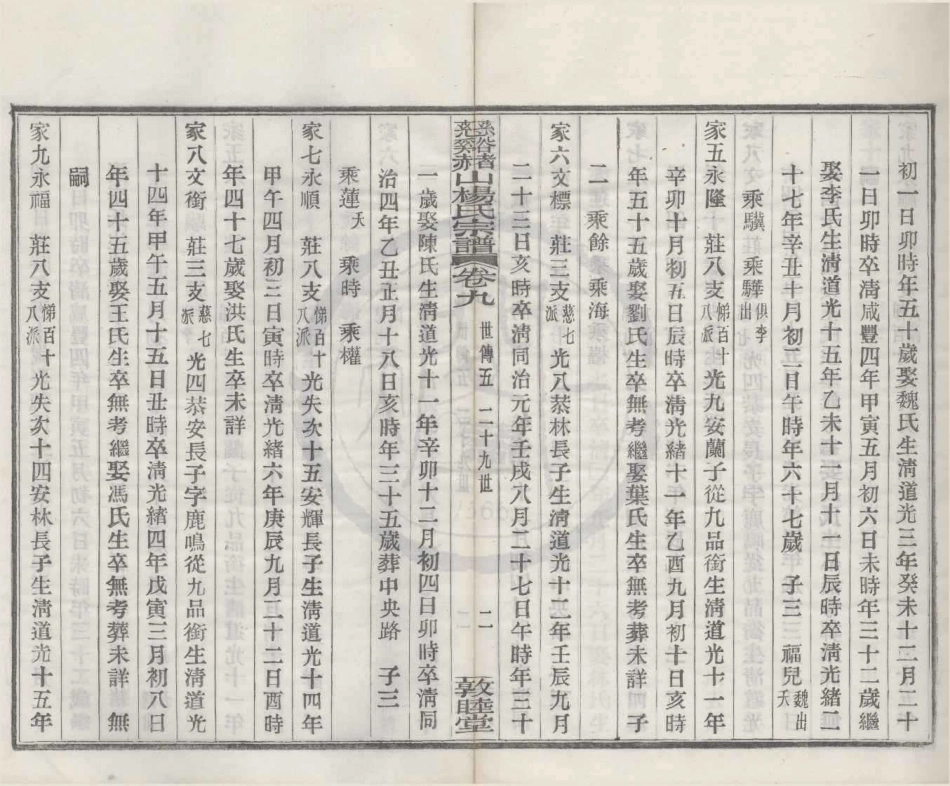 初一日卯時年五十歲娶魏氏生淸道光三年癸未十二月二十
一日卯時卒淸咸豐四年甲寅五月初六日未時年三十二歲繼
娶李氏生淸道光十五年乙未十一月十一日辰時卒淸光緒二
十七年辛丑十月初五日午時年六十七歲 子三 福兒魏出夭
乘驥 乘驊俱李出
家五永隆 莊八支悌百十八派光九安蘭子從九品銜生淸道光十一年
辛卯十月初五日辰時卒淸光緒十一年乙酉九月初十日亥時
年五十五歲娶劉氏生卒無考繼娶葉氏生卒無考葬未詳 子
二 乘餘 乘海
家六文標 莊三支慈七派光八恭林長子生淸道光十二年壬辰九月
二十三日亥時卒淸同治元年壬戌八月二十七日午時年三十
慈谿赭山楊氏宗譜 卷九 世傳五 二十九世 二 敦睦堂
一歲娶陳氏生淸道光十一年辛卯十二月初四日卯時卒淸同
治四年乙丑正月十八日亥時年三十五歲葬中央路 子三
乘蓮夭 乘時 乘權
家七永順 莊八支悌百十八派光失次十五安輝長子生淸道光十四年
甲午四月初三日寅時卒淸光緒六年庚辰九月二十二日酉時
年四十七歲娶洪氏生卒未詳
家八文銜 莊三支慈七派光四恭安長子字鹿鳴從九品銜生淸道光
十四年甲午五月十五日丑時卒淸光緒四年戊寅三月初八日
年四十五歲娶王氏生卒無考繼娶馮氏生卒無考葬未詳 無
嗣
家九永福 莊八支悌百十八派光失次十四安林長子生淸道光十五年